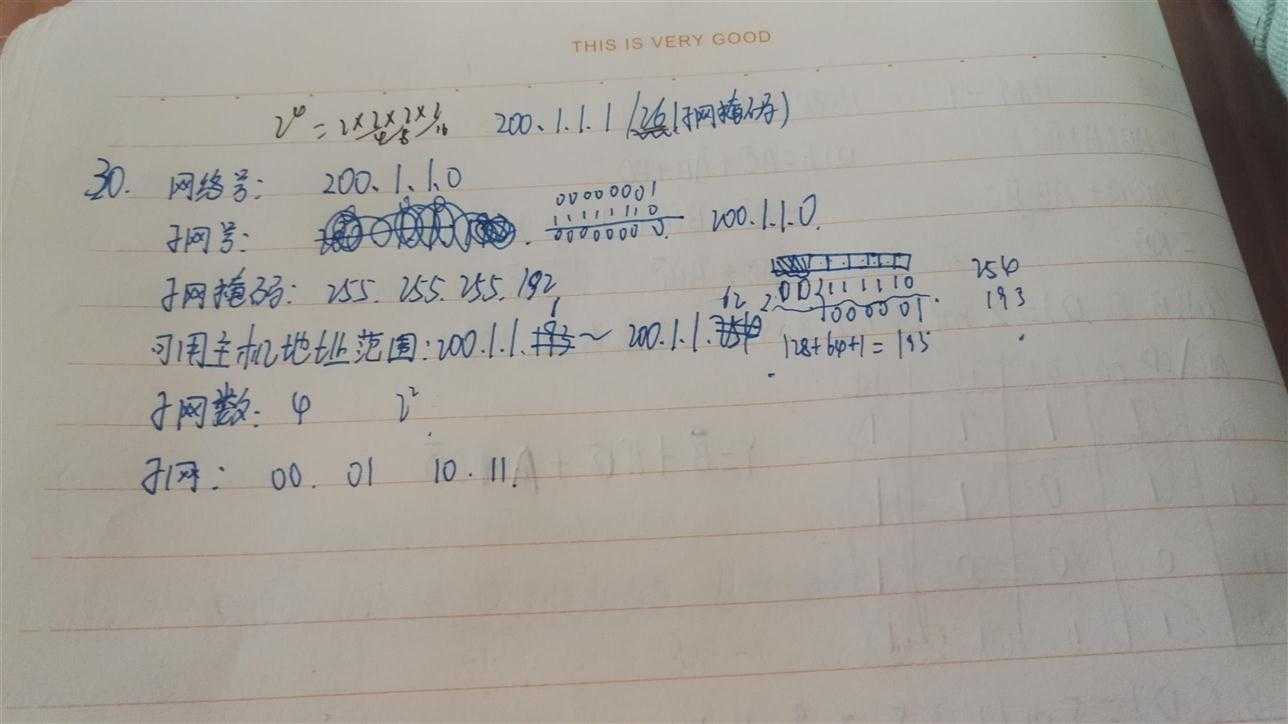 THIS IS VERY GOOD
2⁴ = 2×2×2×2 4 8 16 200.1.1.1 /26(子网掩码)
30. 网络号: 200.1.1.0
子网号: 00000001
11111110
00000000 200.1.1.0.
子网掩码: 255.255.255.192
00111110 254
000001. 193
可用主机地址范围:200.1.1.1~200.1.1.62
128+64+1=193
子网数: 4 2²
子网: 00. 01 10. 11.